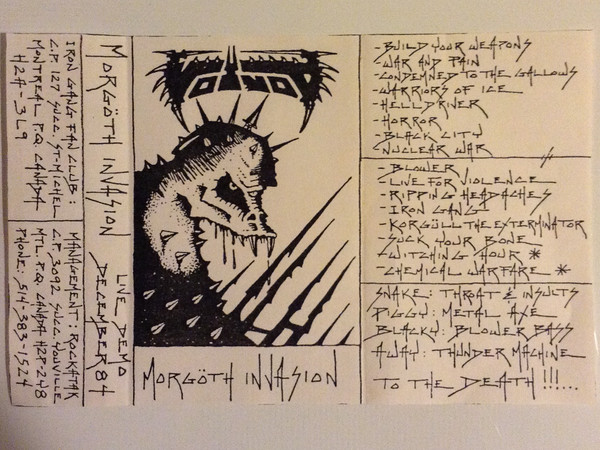 IRON GANG FAN CLUB:
C.P. 127 SUCC. ST-MICHEL
MONTREAL P.Q. CANADA
H2A-3L9
MANAGEMENT: ROCKATAK
C.P. 3092 SUCC YOUVILLE
MTL. P.Q. CANADA H2P-2Y8
PHONE: 514-383-1524
MORGÖTH INVASION
LIVE DEMO
DECEMBER 84
VOIVOD
MORGÖTH INVASION
-BUILD YOUR WEAPONS
-WAR AND PAIN
-CONDEMNED TO THE GALLOWS
-WARRIORS OF ICE
-HELLDRIVER
-HORROR
-BLACK CITY
-NUCLEAR WAR
-BLOWER
-LIVE FOR VIOLENCE
-RIPPING HEADACHES
-IRON GANG
-KORGÜLL THE EXTERMINATOR
-SUCK YOUR BONE
-WITCHING HOUR *
-CHEMICAL WARFARE *
SNAKE: THROAT & INSULTS
PIGGY: METAL AXE
BLACKY: BLOWER BASS
AWAY: THUNDER MACHINE
TO THE DEATH !!!...